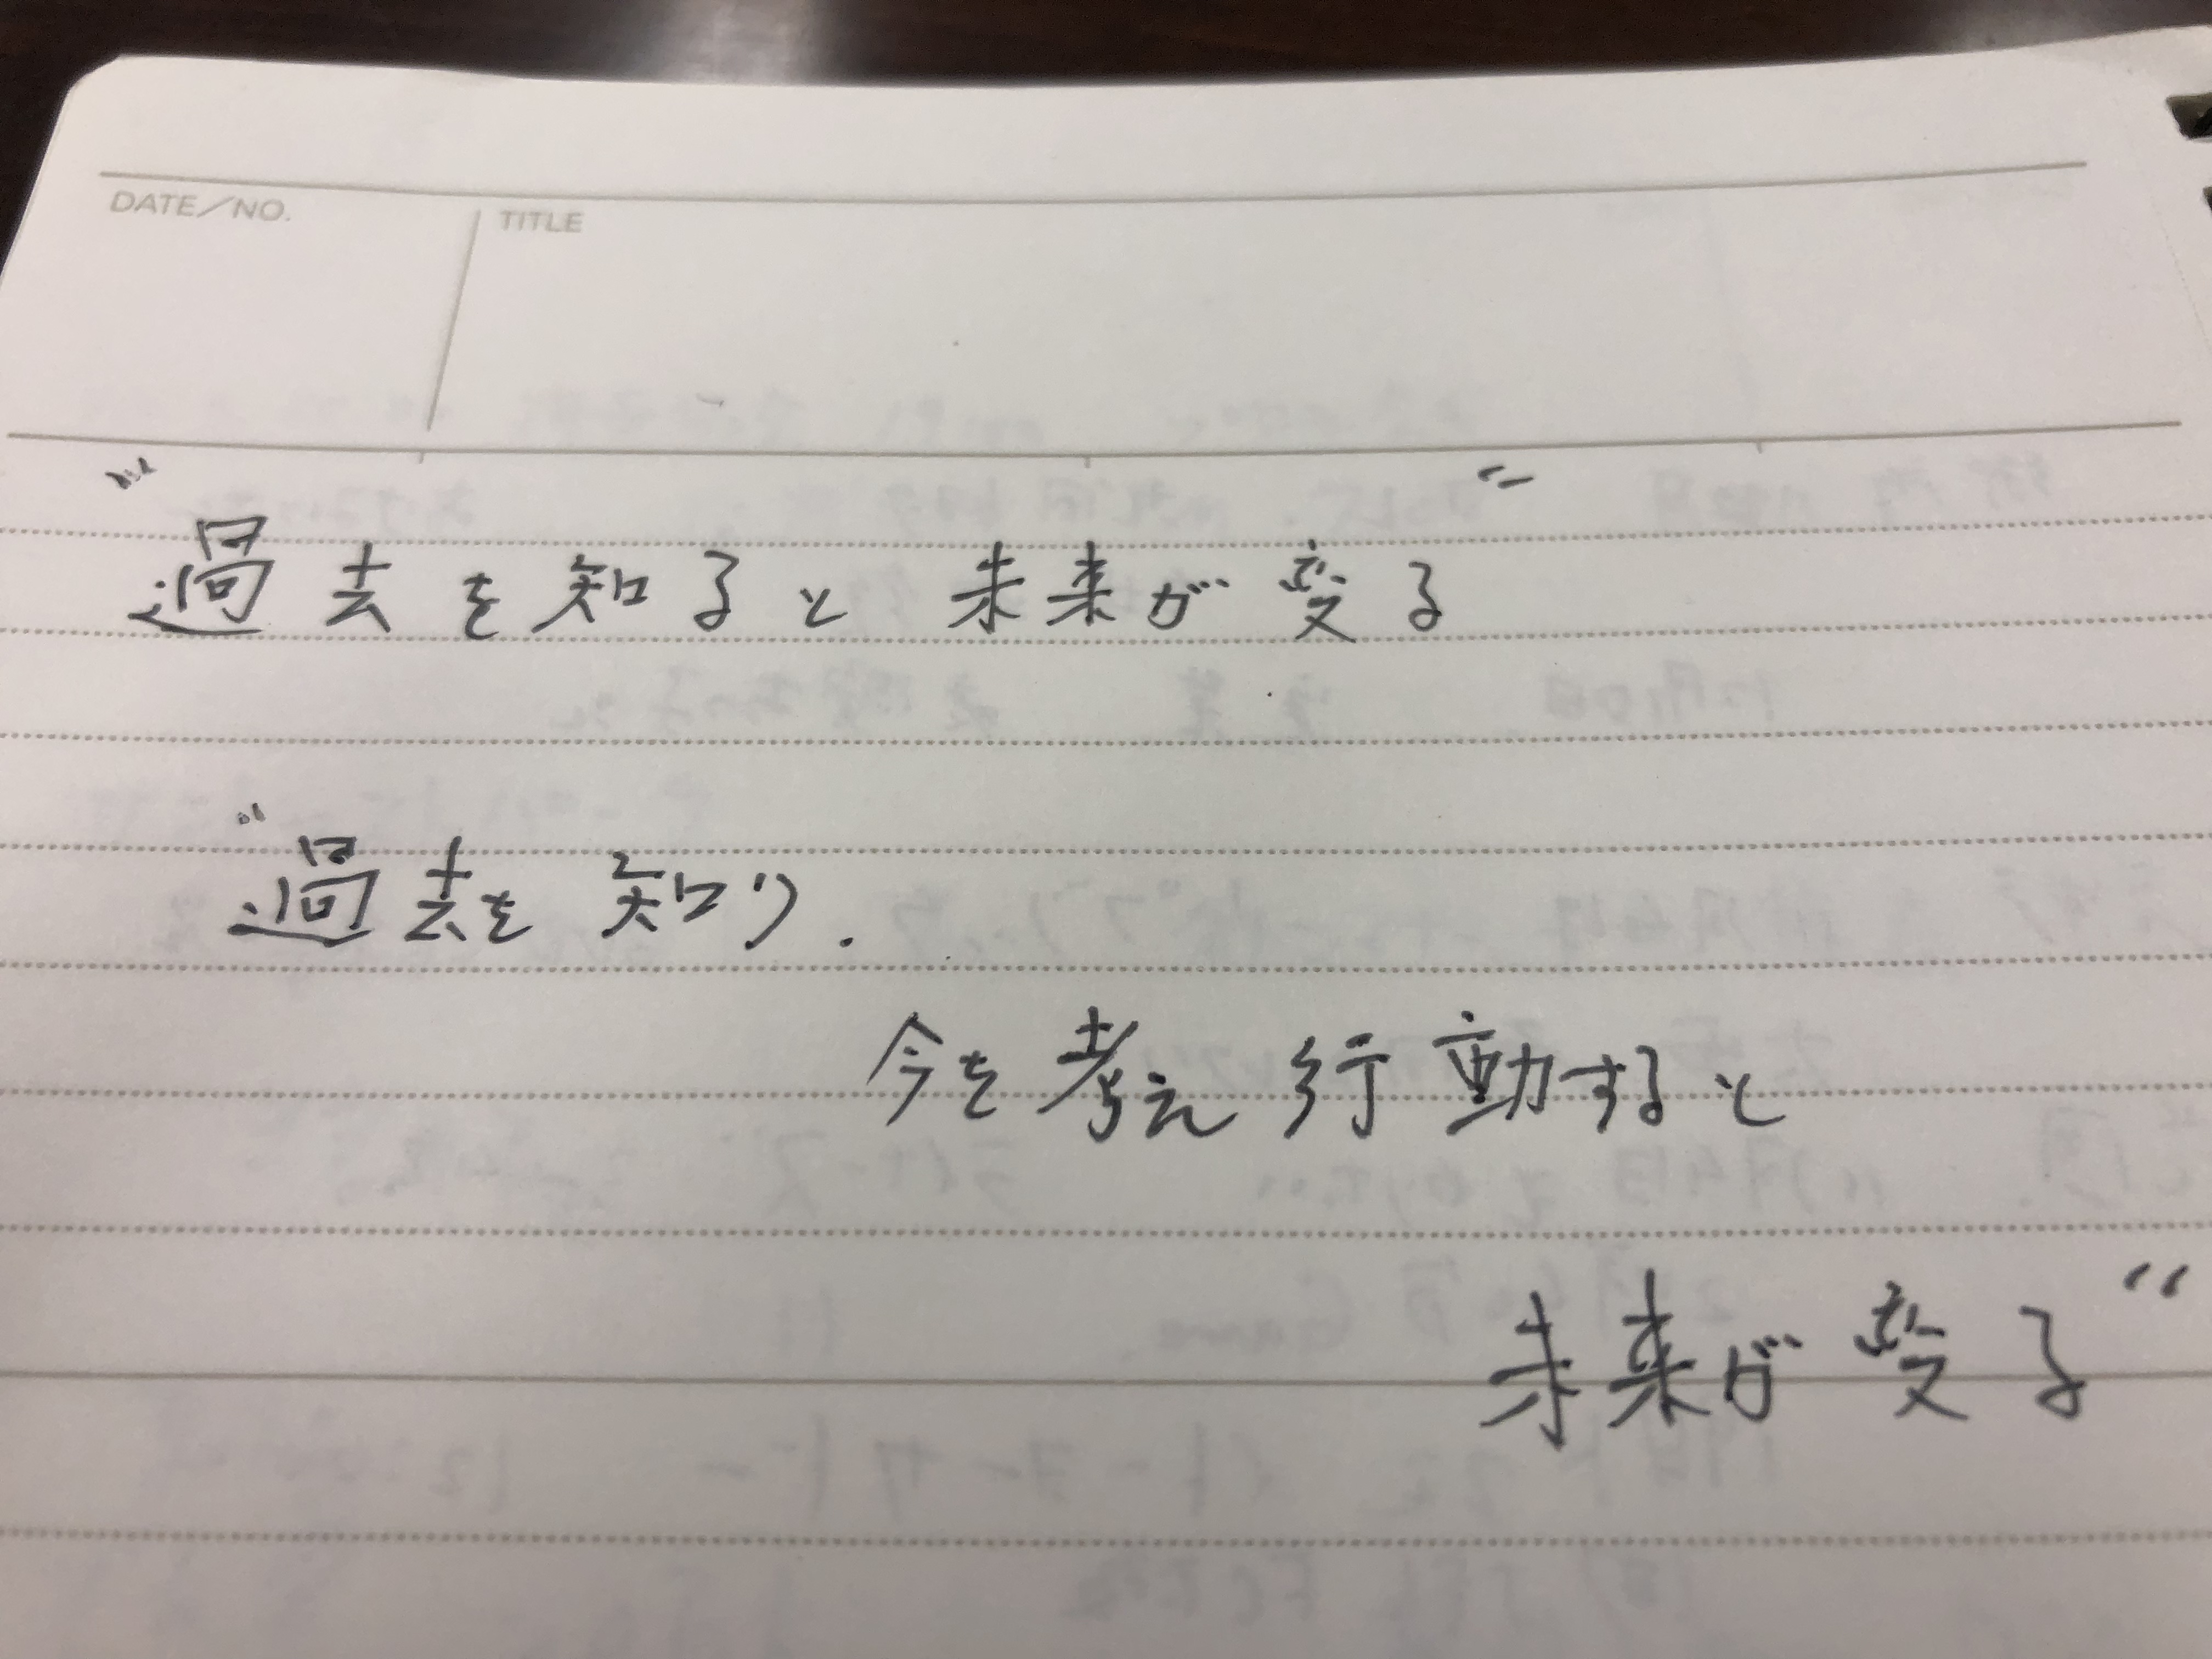 DATE/NO. TITLE
"過去を知ると 未来が変る"
"過去を知り.
今を考え行動すると
未来が変る"